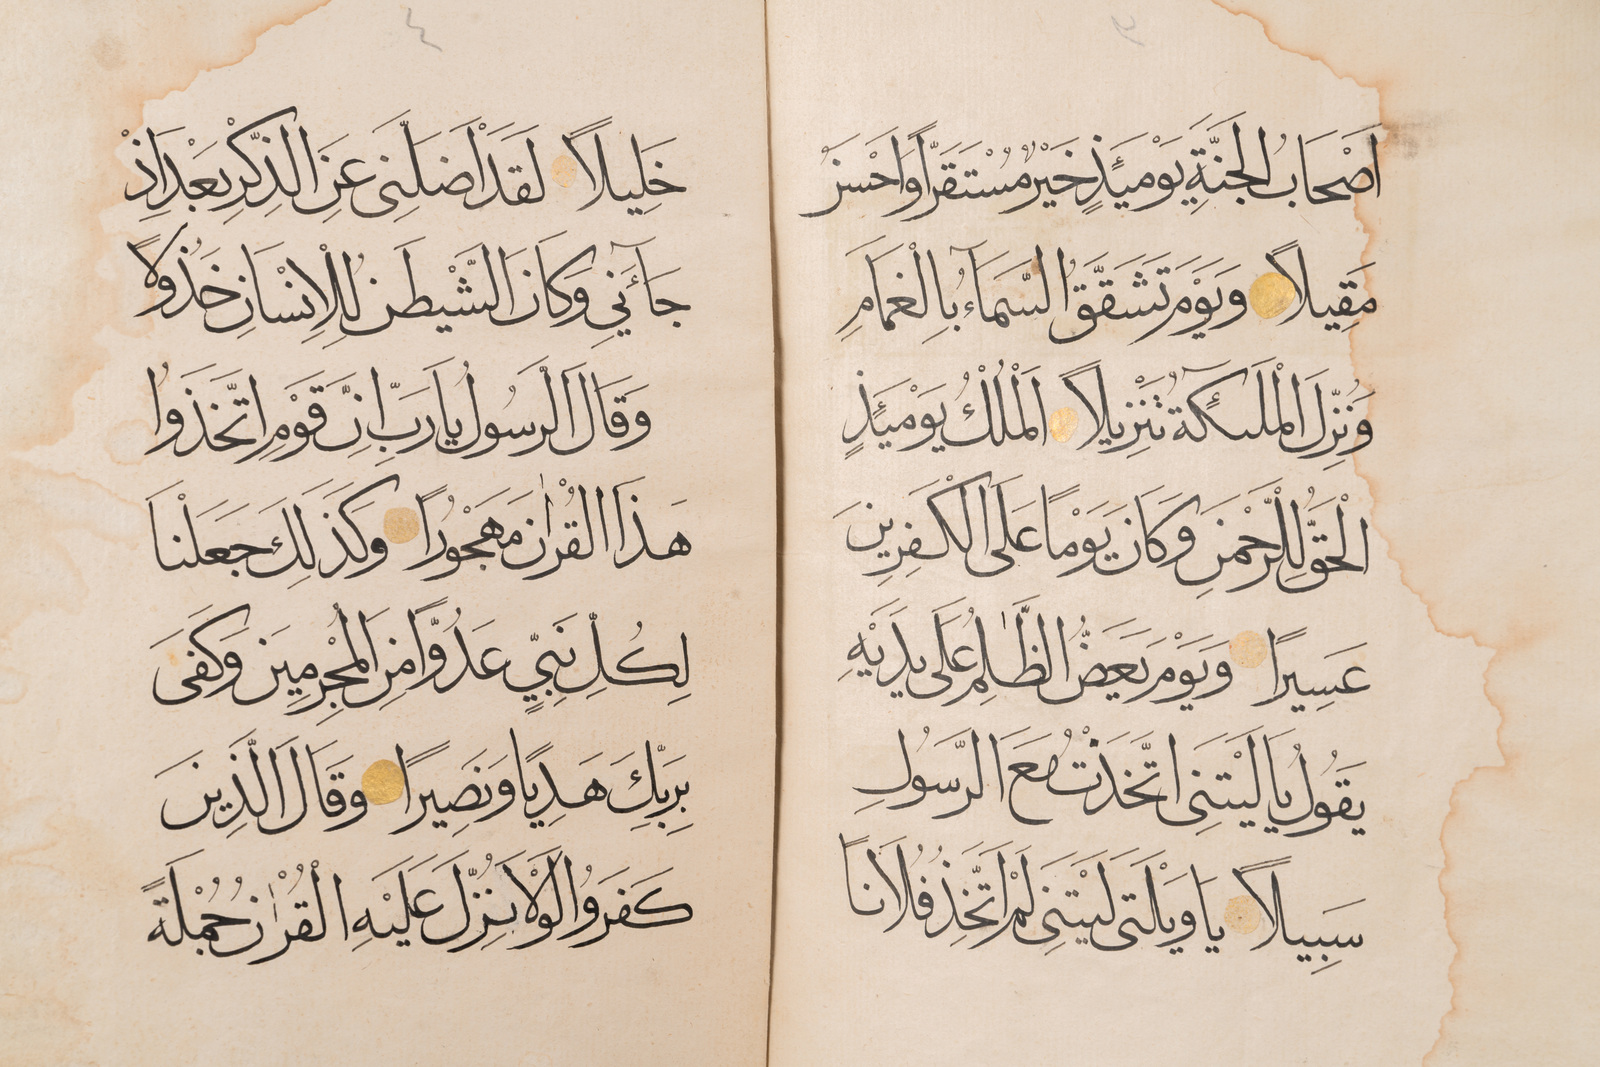 اَصْحَابُ الْجَنَّةِ يَوْمَئِذٍ خَيْرٌ مُسْتَقَرًّا وَاَحْسَنُ
مَقِيلًا وَيَوْمَ تَشَقَّقُ السَّمَاءُ بِالْغَمَامِ
وَنُزِّلَ الْمَلٰئِكَةُ تَنْزِيلًا اَلْمُلْكُ يَوْمَئِذٍ
الْحَقُّ لِلرَّحْمٰنِ وَكَانَ يَوْمًا عَلَى الْكٰفِرِينَ
عَسِيرًا وَيَوْمَ يَعَضُّ الظَّالِمُ عَلٰى يَدَيْهِ
يَقُولُ يَا لَيْتَنِى اتَّخَذْتُ مَعَ الرَّسُولِ
سَبِيلًا يَا وَيْلَتٰى لَيْتَنِى لَمْ اَتَّخِذْ فُلَانًا
خَلِيلًا لَقَدْ اَضَلَّنِى عَنِ الذِّكْرِ بَعْدَ اِذْ
جَاءَنِي وَكَانَ الشَّيْطٰنُ لِلْاِنْسَانِ خَذُولًا
وَقَالَ الرَّسُولُ يَا رَبِّ اِنَّ قَوْمِ اتَّخَذُوا
هٰذَا الْقُرْاٰنَ مَهْجُورًا وَكَذٰلِكَ جَعَلْنَا
لِكُلِّ نَبِيٍّ عَدُوًّا مِنَ الْمُجْرِمِينَ وَكَفٰى
بِرَبِّكَ هَادِيًا وَنَصِيرًا وَقَالَ الَّذِينَ
كَفَرُوا لَوْلَا نُزِّلَ عَلَيْهِ الْقُرْاٰنُ جُمْلَةً